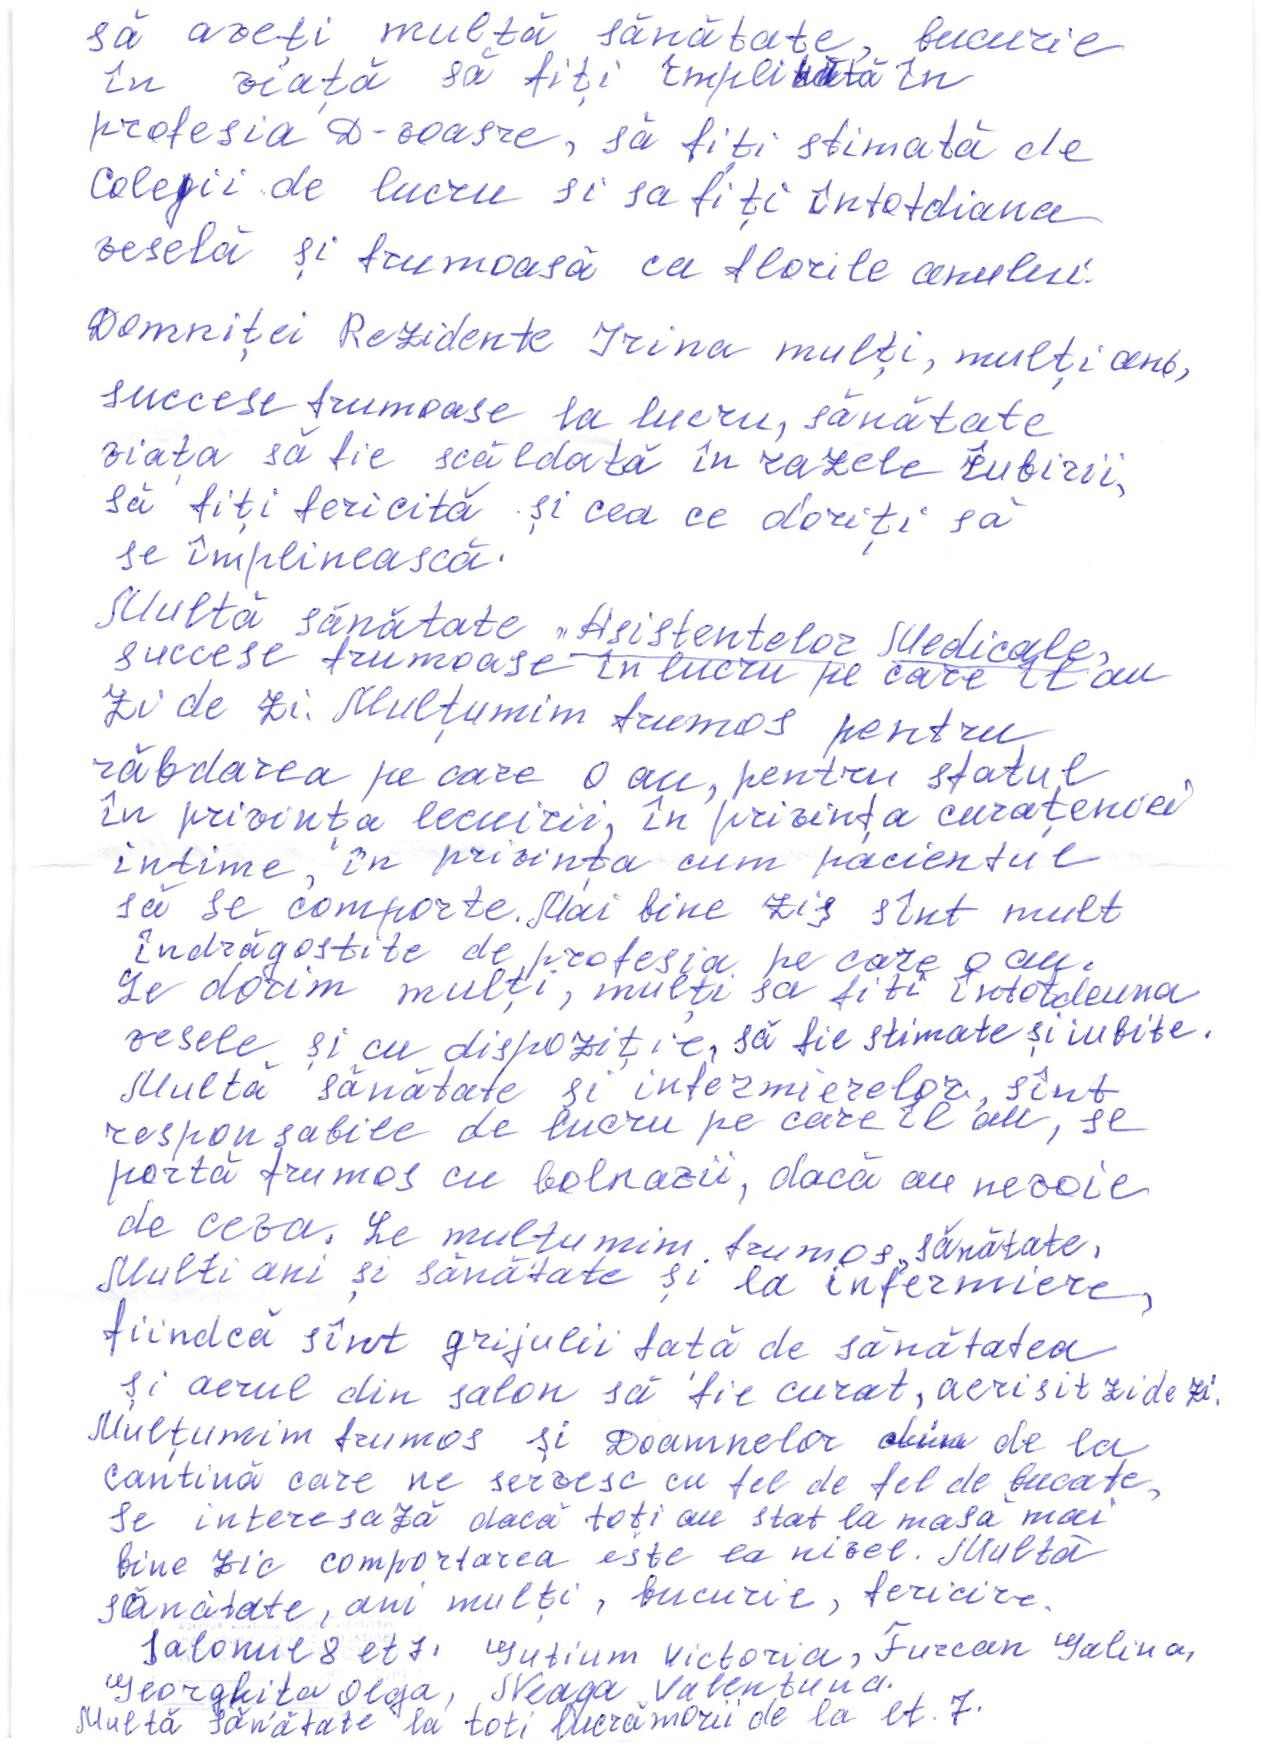 să aveți multă sănătate, bucurie
în viață să fiți împlinătă în
profesia D-voasre, să fiți stimată de
Colegii de lucru si sa fiți întotdiana
veselă și frumoasă ca florile anului.
Domniței Rezidente Irina mulți, mulți ani,
succese frumoase la lucru, sănătate
viața să fie scăldată în razele Iubirii,
să fiți fericită și cea ce doriți să
se împlinească.
Multă sănătate „Asistentelor Medicale,
succese frumoase în lucru pe care îl au
zi de zi. Mulțumim frumos pentru
răbdarea pe care o au, pentru sfatul
în privința lecuirii, în privința curațeniei
intime, în privința cum pacientul
să se comporte. Mai bine zis sînt mult
îndrăgostite de profesia pe care o au.
Le dorim mulți, mulți sa fiți întotdeuna
vesele și cu dispoziție, să fie stimate și iubite.
Multă sănătate și infermierelor, sînt
responsabile de lucru pe care îl au, se
portă frumos cu bolnavii, dacă au nevoie
de ceva. Le multumim frumos, sănătate.
Multi ani și sănătate și la infermiere,
fiindcă sînt grijulii fată de sănătatea
și aerul din salon să fie curat, aerisit zi de zi.
Mulțumim frumos și Doamnelor de la
cantină care ne servesc cu fel de fel de bucate,
se interesază dacă toți au stat la masă mai
bine zic comportarea ește la nivel. Multă
sănătate, ani mulți, bucurie, fericire.
Salonul 8 et 7. Guțium Victoria, Furcan Galina,
Georghița Olga, Neaga Valentuna.
Multă sănătate la toti lucrămorii de la et. 7.